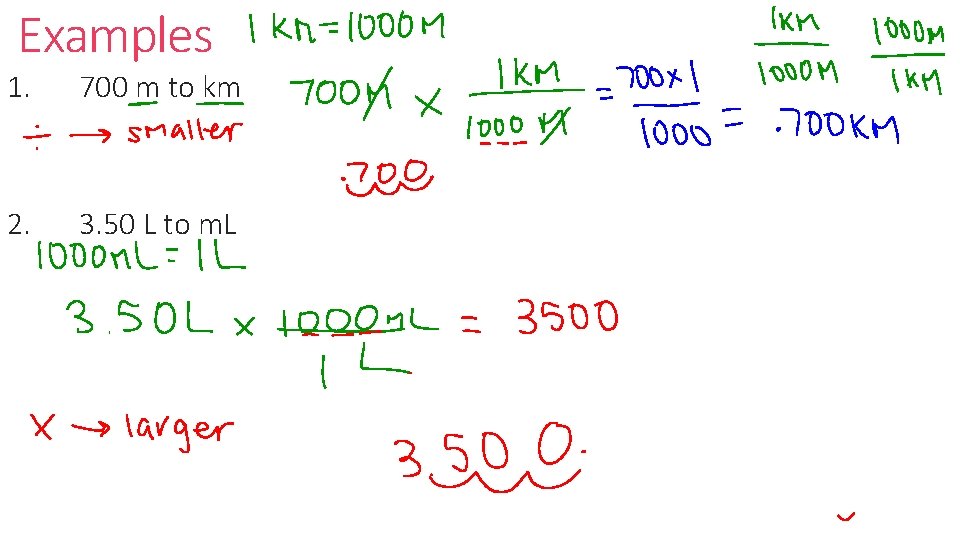 Examples 1 km = 1000M
1KM 1000M
1000M 1KM
1. 700 m to km 700M x 1KM = 700x1 = .700KM
1000 M 1000
÷ → smaller
.700
2. 3.50 L to mL
1000mL = 1L
3.50L x 1000mL = 3500
1 L
x → larger
3.500.